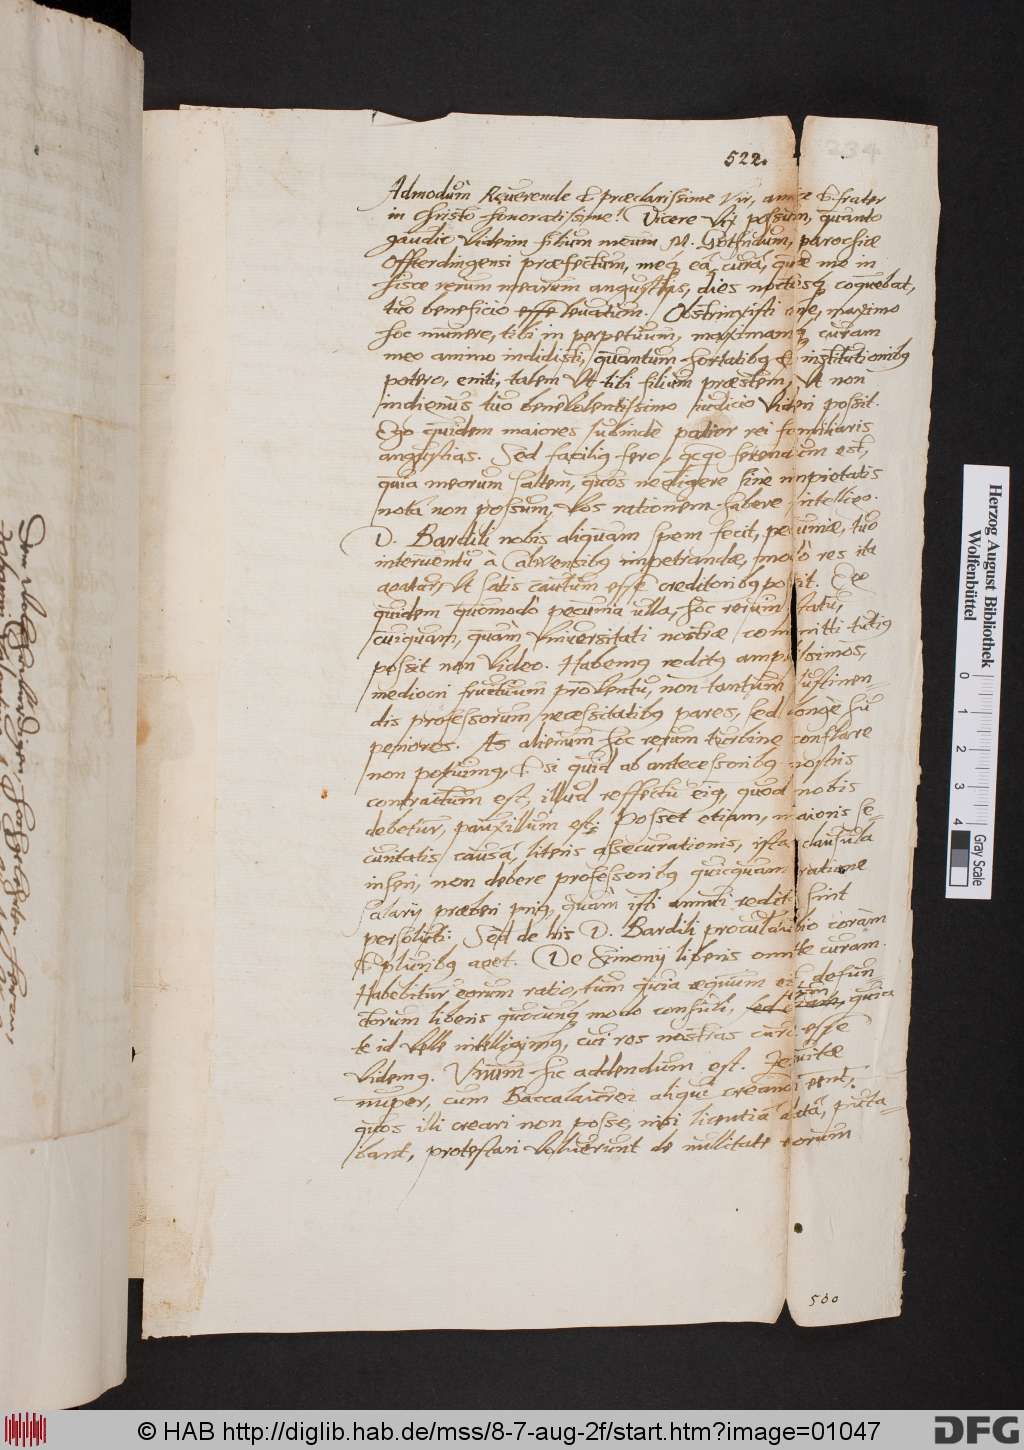 522.
Admodum Reverende & præclarissime Vir, amice & frater
in Christo honoratissime! Dicere vix possum, quanto
gaudio viderim filium meum M. Gotfridum, parochiæ
Offterdingensi præfectum, meq; eâ curâ, quæ me in
hisce rerum mearum angustijs, dies noctesq; coquebat,
tuo beneficio esse levatum. Obstrinxisti me, maximo
hoc munere, tibi in perpetuum, maximamq; curam
meo animo indidisti, quantum hortatibq & institutionibq
potero, eniti, talem vt tibi filium præstem, vt non
indignus tuo benevolentissimo iudicio videri possit.
Ego quidem maiores subinde patior rei familiaris
angustias. Sed facilius fero, qcqd ferendum est,
quia meorum saltem, quos negligere sine impietatis
nota non possum, vos rationem habere intelligo.
D. Bardili nobis aliquam spem fecit, pecuniæ, tuo
interventu à Calwensibq impetrandæ, modò res ita
agatur, vt satis cautum esse creditoribq possit. Ego
quidem quomodo pecunia ulla, hoc rerum statu,
cuiquam, quàm Vniversitati nostræ committi tutiq
possit non video. Habemq reditq amplissimos,
mediocri fructuum proventu, non tantùm sustinen-
dis professorum necessitatibq pares, sed longè su
periores. Æs alienum hoc rerum turbine conflare
non potuimq, & si quid ab antecessoribq nostris
contractum est, illud respectu eiq, quod nobis
debetur, pauxillum est. Posset etiam, maioris se-
curitatis causâ, literis assecurationis, ista clausula
inseri, non debere professoribq quicquam ratione
salarij præberi priq, quàm isti annui reditq sint
persoluti: Sed de his D. Bardili proculdubio coràm
& pluribq aget. De Simonij liberis omitte curam.
Habebitur eorum ratio, tum quia æquum est defun-
ctorum liberis quocunq; modo consuli, tum, quia
te id velle intelligimq, cui res nostras curæ esse
videmq. Vnum hic addendum est. Jesuitæ
nuper, cum Baccalaurei aliqui creandi essent,
quos illi creari non posse, nisi licentiâ datâ, puta-
bant, protestari voluerunt de nullitate eorum
500
Herzog August Bibliothek
Wolfenbüttel
0 1 2 3 4
Gray Scale
© HAB http://diglib.hab.de/mss/8-7-aug-2f/start.htm?image=01047
DFG